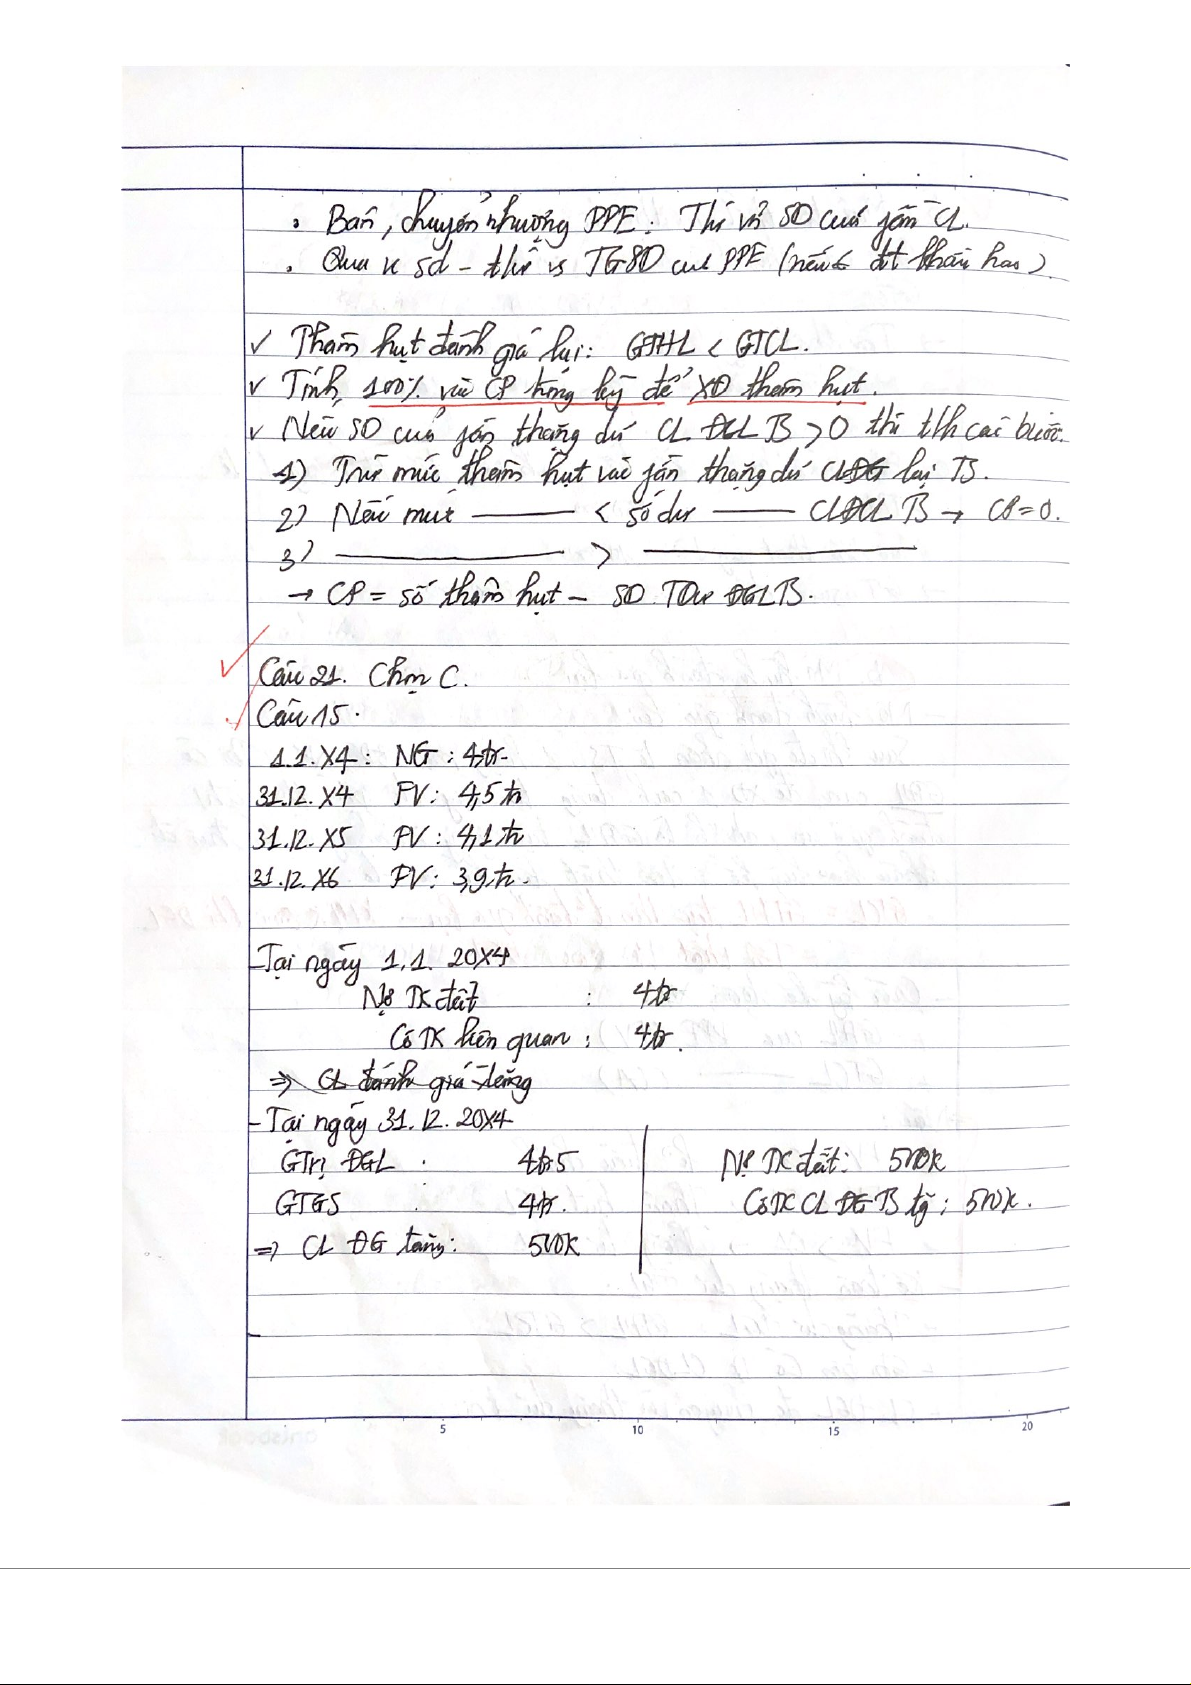 • Bán, chuyển nhượng PPE: Thì số của gần CL.
• Qua sd - TGSD PPE (nếu đt khấu hao)
✓ Thâm hụt đánh giá lại: GTHL < GTCL.
✓ Tính 100% vào CP trong kỳ để XĐ thâm hụt.
✓ Nếu SD của thặng dư CL ĐGL TS > 0 thì các bước.
1) Trừ mức thâm hụt vào thặng dư CLĐG lại TS.
2) Nếu mức ——— < số dư ——— CLĐGL TS → CP = 0.
3) ——————— > ———————
→ CP = số thâm hụt - SD. TDư ĐGLTS.
Câu 21. Chọn C.
Câu 15.
1.1.X4: NG: 4tr
31.12.X4 FV: 4,5 tr
31.12.X5 FV: 4,1 tr
31.12.X6 FV: 3,9 tr.
- Tại ngày 1.1.20X4
Nợ TK đất : 4tr
Có TK liên quan : 4tr.
⇒ CL đánh giá tăng
- Tại ngày 31.12.20X4
GTrị ĐGL : 4tr5 Nợ TK đất: 500k
GTGS : 4tr. Có TK CL ĐG TS tg: 500k.
⇒ CL ĐG tăng: 500k
5 10 15 20